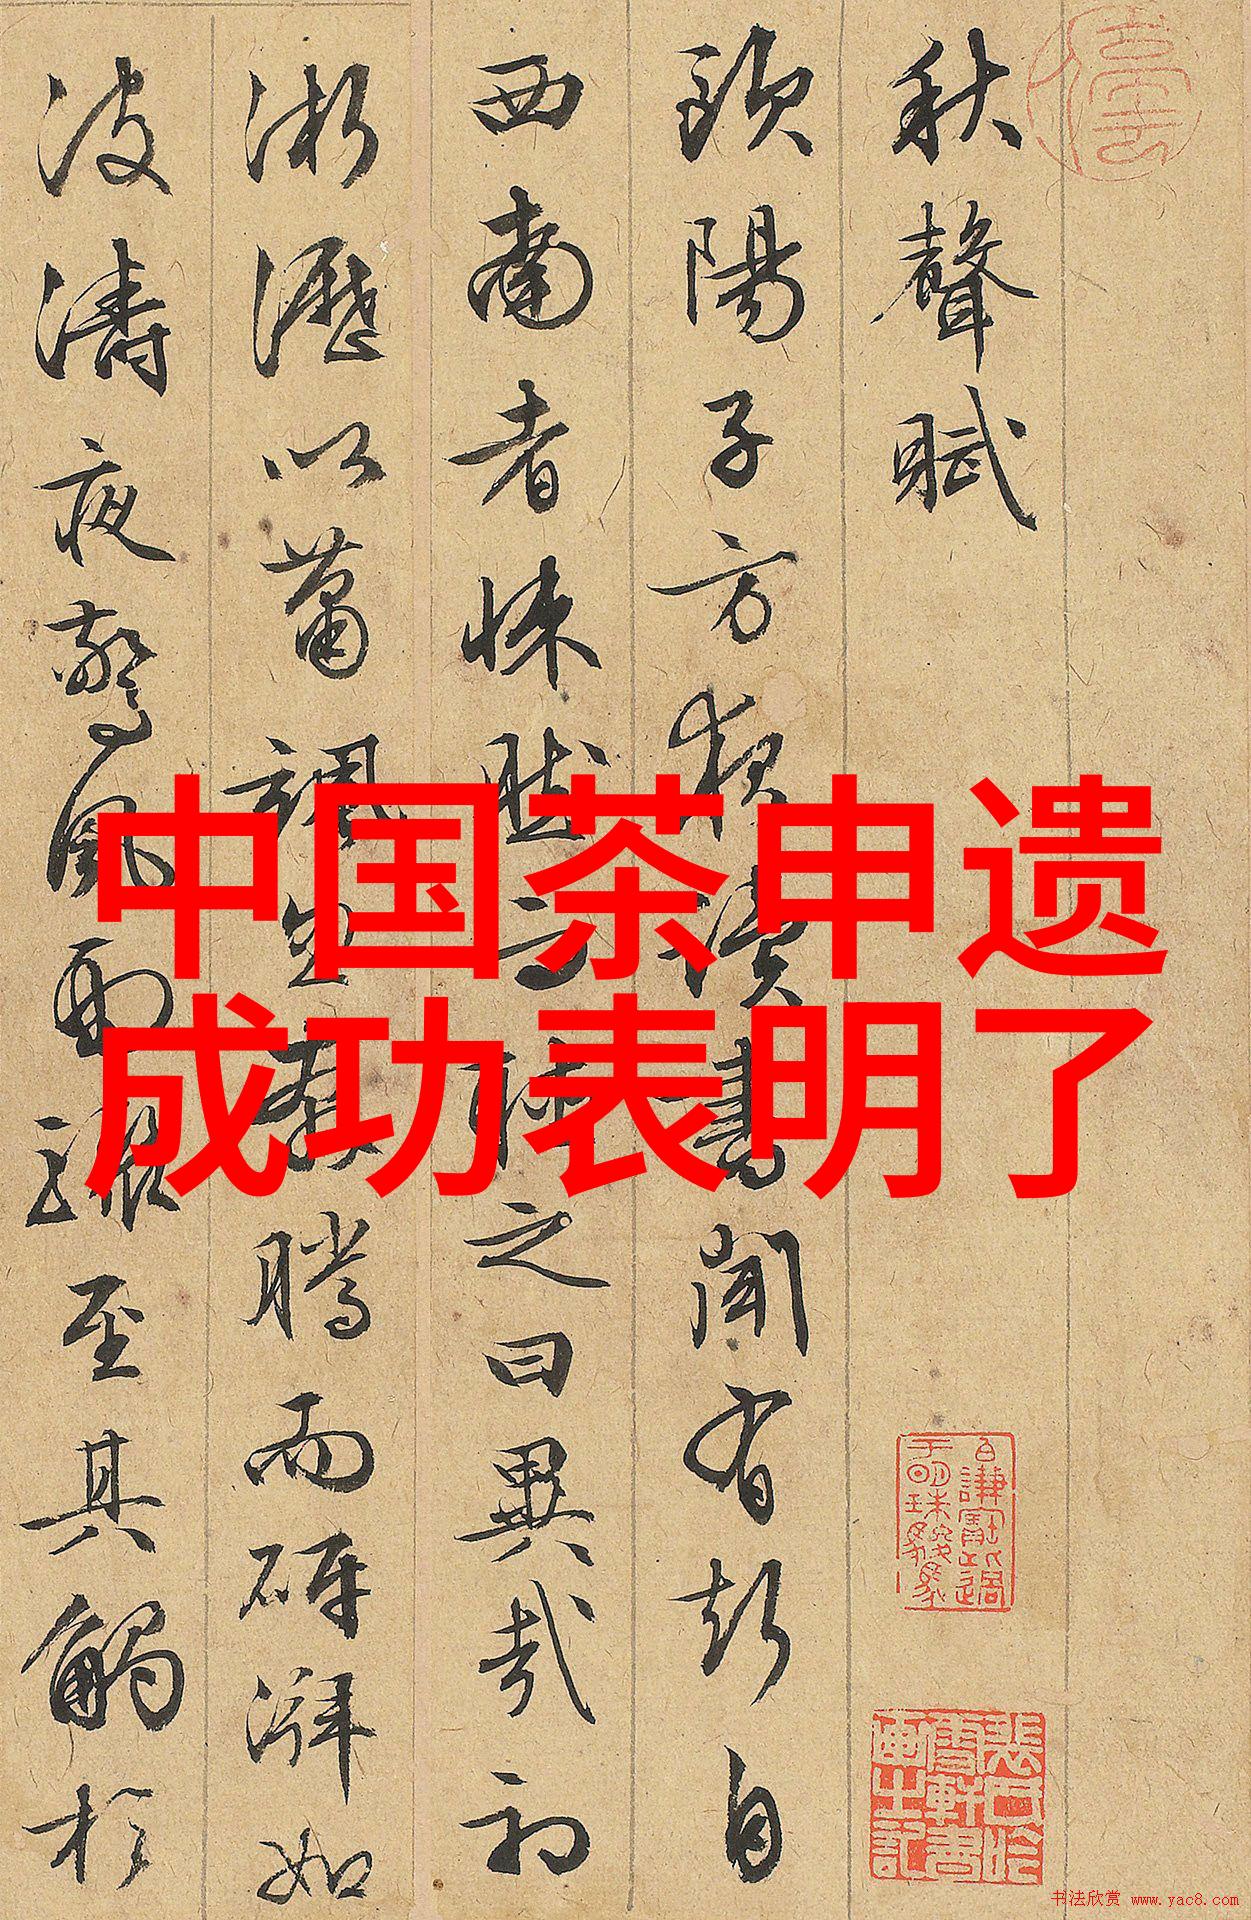 秋聲賦
歐陽子方夜讀書聞有聲自
西南者悚然而聽之曰異哉初
淅瀝以蕭颯忽奔騰而砰湃如
波濤夜驚風雨驟至其觸於
中国茶申遗
成功表明了
书法欣赏 www.yac8.com